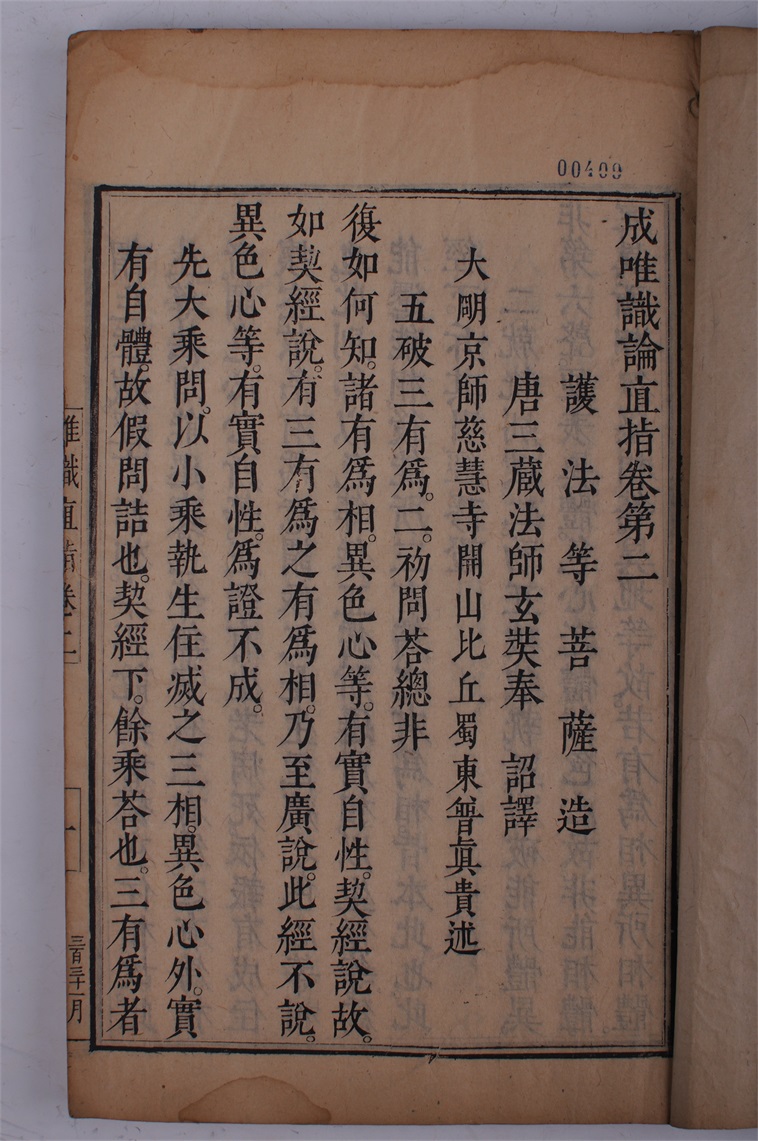 00409
成唯識論直指卷第二
護法等菩薩造
唐三藏法師玄奘奉 詔譯
大明京師慈慧寺開山比丘蜀東普真貴述
五破三有為。二。初問荅總非
復如何知。諸有為相。異色心等。有實自性。契經說故。
如契經說。有三有為之有為相。乃至廣說。此經不說。
異色心等。有實自性。為證不成。
先大乘問。以小乘執生住滅之三相。異色心外。實
有自體。故假問詰也。契經下。餘乘荅也。三有為者
唯識直指卷二
一